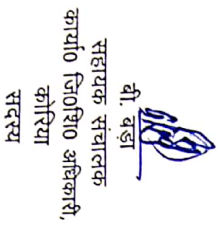 वी. बड़ा
सहायक संचालक
कार्या० जि०शि० अधिकारी,
कोरिया
सदस्य